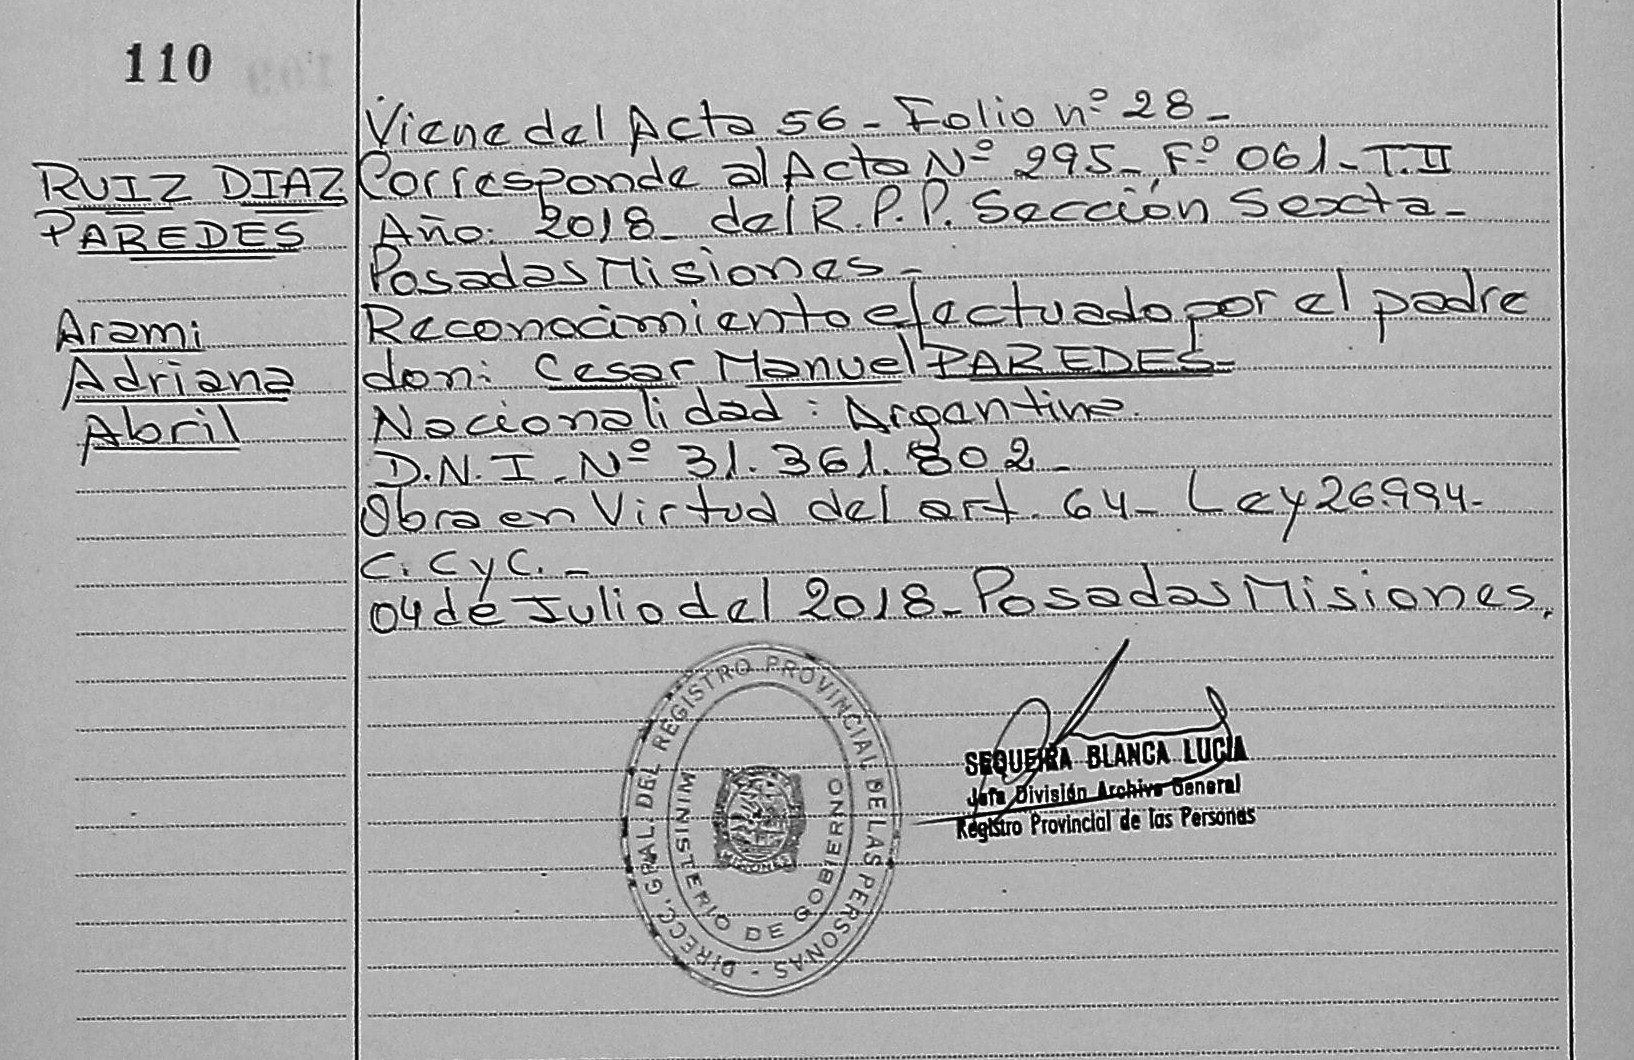 110
RUIZ DIAZ
PAREDES
Arami
Adriana
Abril
Viene del Acta 56 - Folio nº 28 -
Corresponde al Acta Nº 295 - Fº 061 - T. II
Año: 2018 - del R. P. P. Sección Sexta -
Posadas Misiones -
Reconocimiento efectuado por el padre
don: Cesar Manuel PAREDES -
Nacionalidad: Argentina.
D.N.I. Nº 31.361.802 -
Obra en Virtud del art. 64 - Ley 26.994 -
C. C y C. -
04 de Julio del 2018 - Posadas Misiones.
DIRECC. GRAL. DEL REGISTRO PROVINCIAL DE LAS PERSONAS -
MINISTERIO DE GOBIERNO
MISIONES
SEQUEIRA BLANCA LUCIA
Jefa División Archivo General
Registro Provincial de las Personas